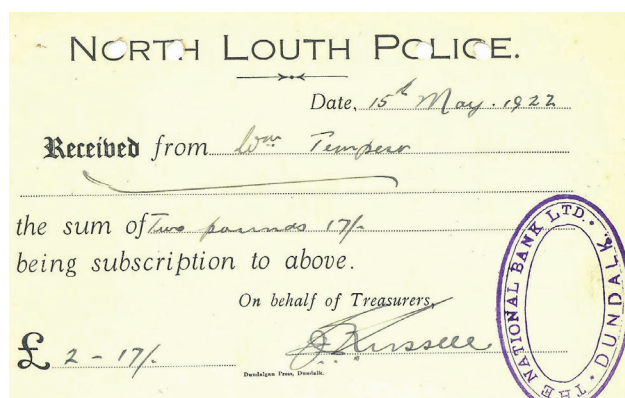 NORTH LOUTH POLICE.
Date, 15th May. 1922
Received from Wm Tempest
the sum of Two pounds 17/-
being subscription to above.
On behalf of Treasurers,
J Russell
£ 2 - 17/-
Dundalgan Press, Dundalk.
THE NATIONAL BANK LTD. DUNDALK